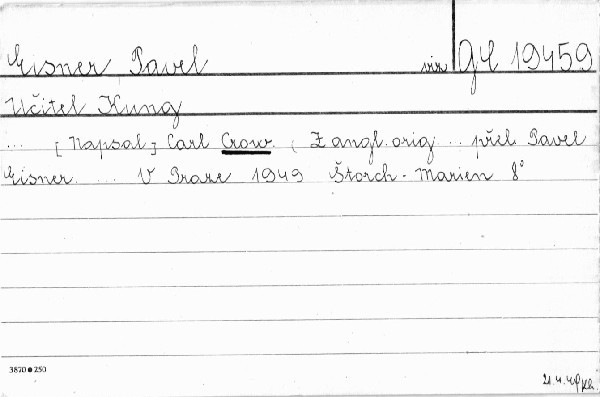 Eisner Pavel viz Gd 19459
Učitel Kung
... [Napsal] Carl Crow. (Z angl. orig ... přel. Pavel
Eisner. ... V Praze 1949 Štorch-Marien 8°
3870 ● 250
21.4.49